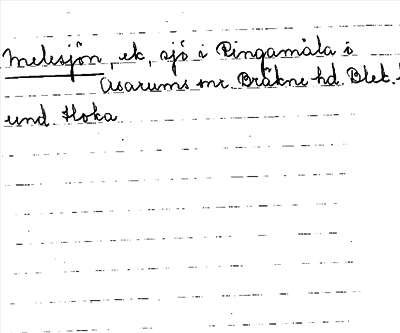 Melesjön, ek, sjö i Ringamåla i
Asarums sn. Bräkne hd. Blek.
und Hoka